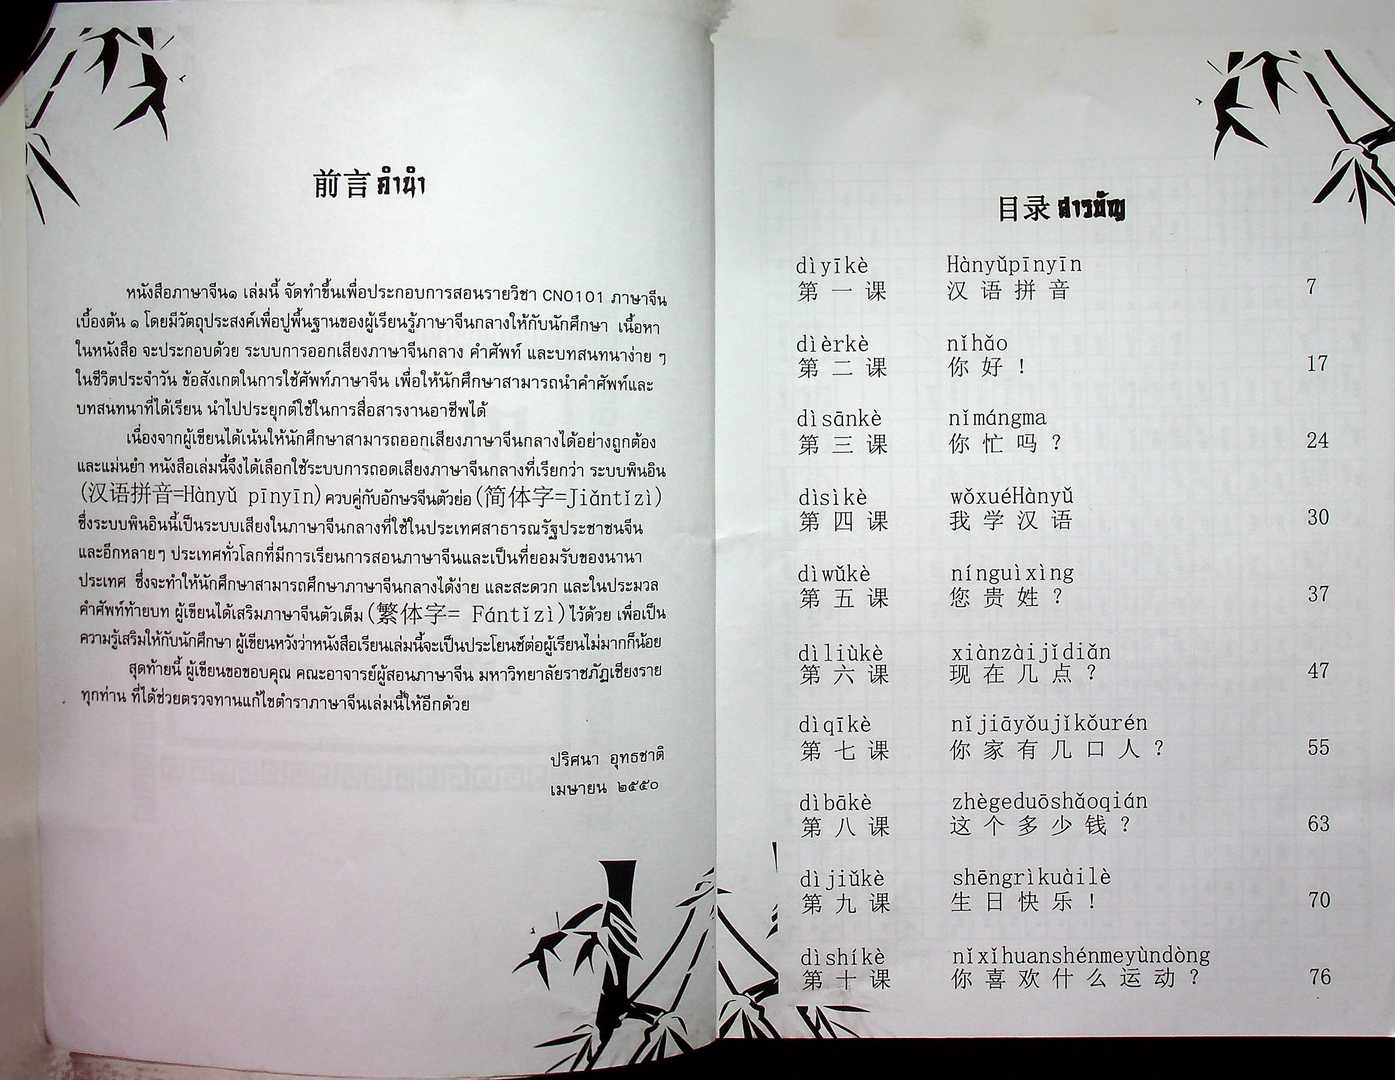 前言 คำนำ
หนังสือภาษาจีน๑ เล่มนี้ จัดทำขึ้นเพื่อประกอบการสอนรายวิชา CN0101 ภาษาจีน
เบื้องต้น ๑ โดยมีวัตถุประสงค์เพื่อปูพื้นฐานของผู้เรียนรู้ภาษาจีนกลางให้กับนักศึกษา เนื้อหา
ในหนังสือ จะประกอบด้วย ระบบการออกเสียงภาษาจีนกลาง คำศัพท์ และบทสนทนาง่าย ๆ
ในชีวิตประจำวัน ข้อสังเกตในการใช้ศัพท์ภาษาจีน เพื่อให้นักศึกษาสามารถนำคำศัพท์และ
บทสนทนาที่ได้เรียน นำไปประยุกต์ใช้ในการสื่อสารงานอาชีพได้
เนื่องจากผู้เขียนได้เน้นให้นักศึกษาสามารถออกเสียงภาษาจีนกลางได้อย่างถูกต้อง
และแม่นยำ หนังสือเล่มนี้จึงได้เลือกใช้ระบบการถอดเสียงภาษาจีนกลางที่เรียกว่า ระบบพินอิน
(汉语拼音=Hànyǔ pīnyīn) ควบคู่กับอักษรจีนตัวย่อ (简体字=Jiǎntǐzì)
ซึ่งระบบพินอินนี้เป็นระบบเสียงในภาษาจีนกลางที่ใช้ในประเทศสาธารณรัฐประชาชนจีน
และอีกหลายๆ ประเทศทั่วโลกที่มีการเรียนการสอนภาษาจีนและเป็นที่ยอมรับของนานา
ประเทศ ซึ่งจะทำให้นักศึกษาสามารถศึกษาภาษาจีนกลางได้ง่าย และสะดวก และในประมวล
คำศัพท์ท้ายบท ผู้เขียนได้เสริมภาษาจีนตัวเต็ม (繁体字= Fántǐzì) ไว้ด้วย เพื่อเป็น
ความรู้เสริมให้กับนักศึกษา ผู้เขียนหวังว่าหนังสือเรียนเล่มนี้จะเป็นประโยชน์ต่อผู้เรียนไม่มากก็น้อย
สุดท้ายนี้ ผู้เขียนขอขอบคุณ คณะอาจารย์ผู้สอนภาษาจีน มหาวิทยาลัยราชภัฏเชียงราย
ทุกท่าน ที่ได้ช่วยตรวจทานแก้ไขตำราภาษาจีนเล่มนี้ให้อีกด้วย
ปริศนา อุทธชาติ
เมษายน ๒๕๕๐
目录 สารบัญ
dìyīkè Hànyǔpīnyīn
第一课 汉语拼音 7
dìèrkè nǐhǎo
第二课 你好！ 17
dìsānkè nǐmángma
第三课 你忙吗？ 24
dìsìkè wǒxuéHànyǔ
第四课 我学汉语 30
dìwǔkè nínguìxìng
第五课 您贵姓？ 37
dìliùkè xiànzàijǐdiǎn
第六课 现在几点？ 47
dìqīkè nǐjiāyǒujǐkǒurén
第七课 你家有几口人？ 55
dìbākè zhègeduōshǎoqián
第八课 这个多少钱？ 63
dìjiǔkè shēngrìkuàilè
第九课 生日快乐！ 70
dìshíkè nǐxǐhuanshénmeyùndòng
第十课 你喜欢什么运动？ 76